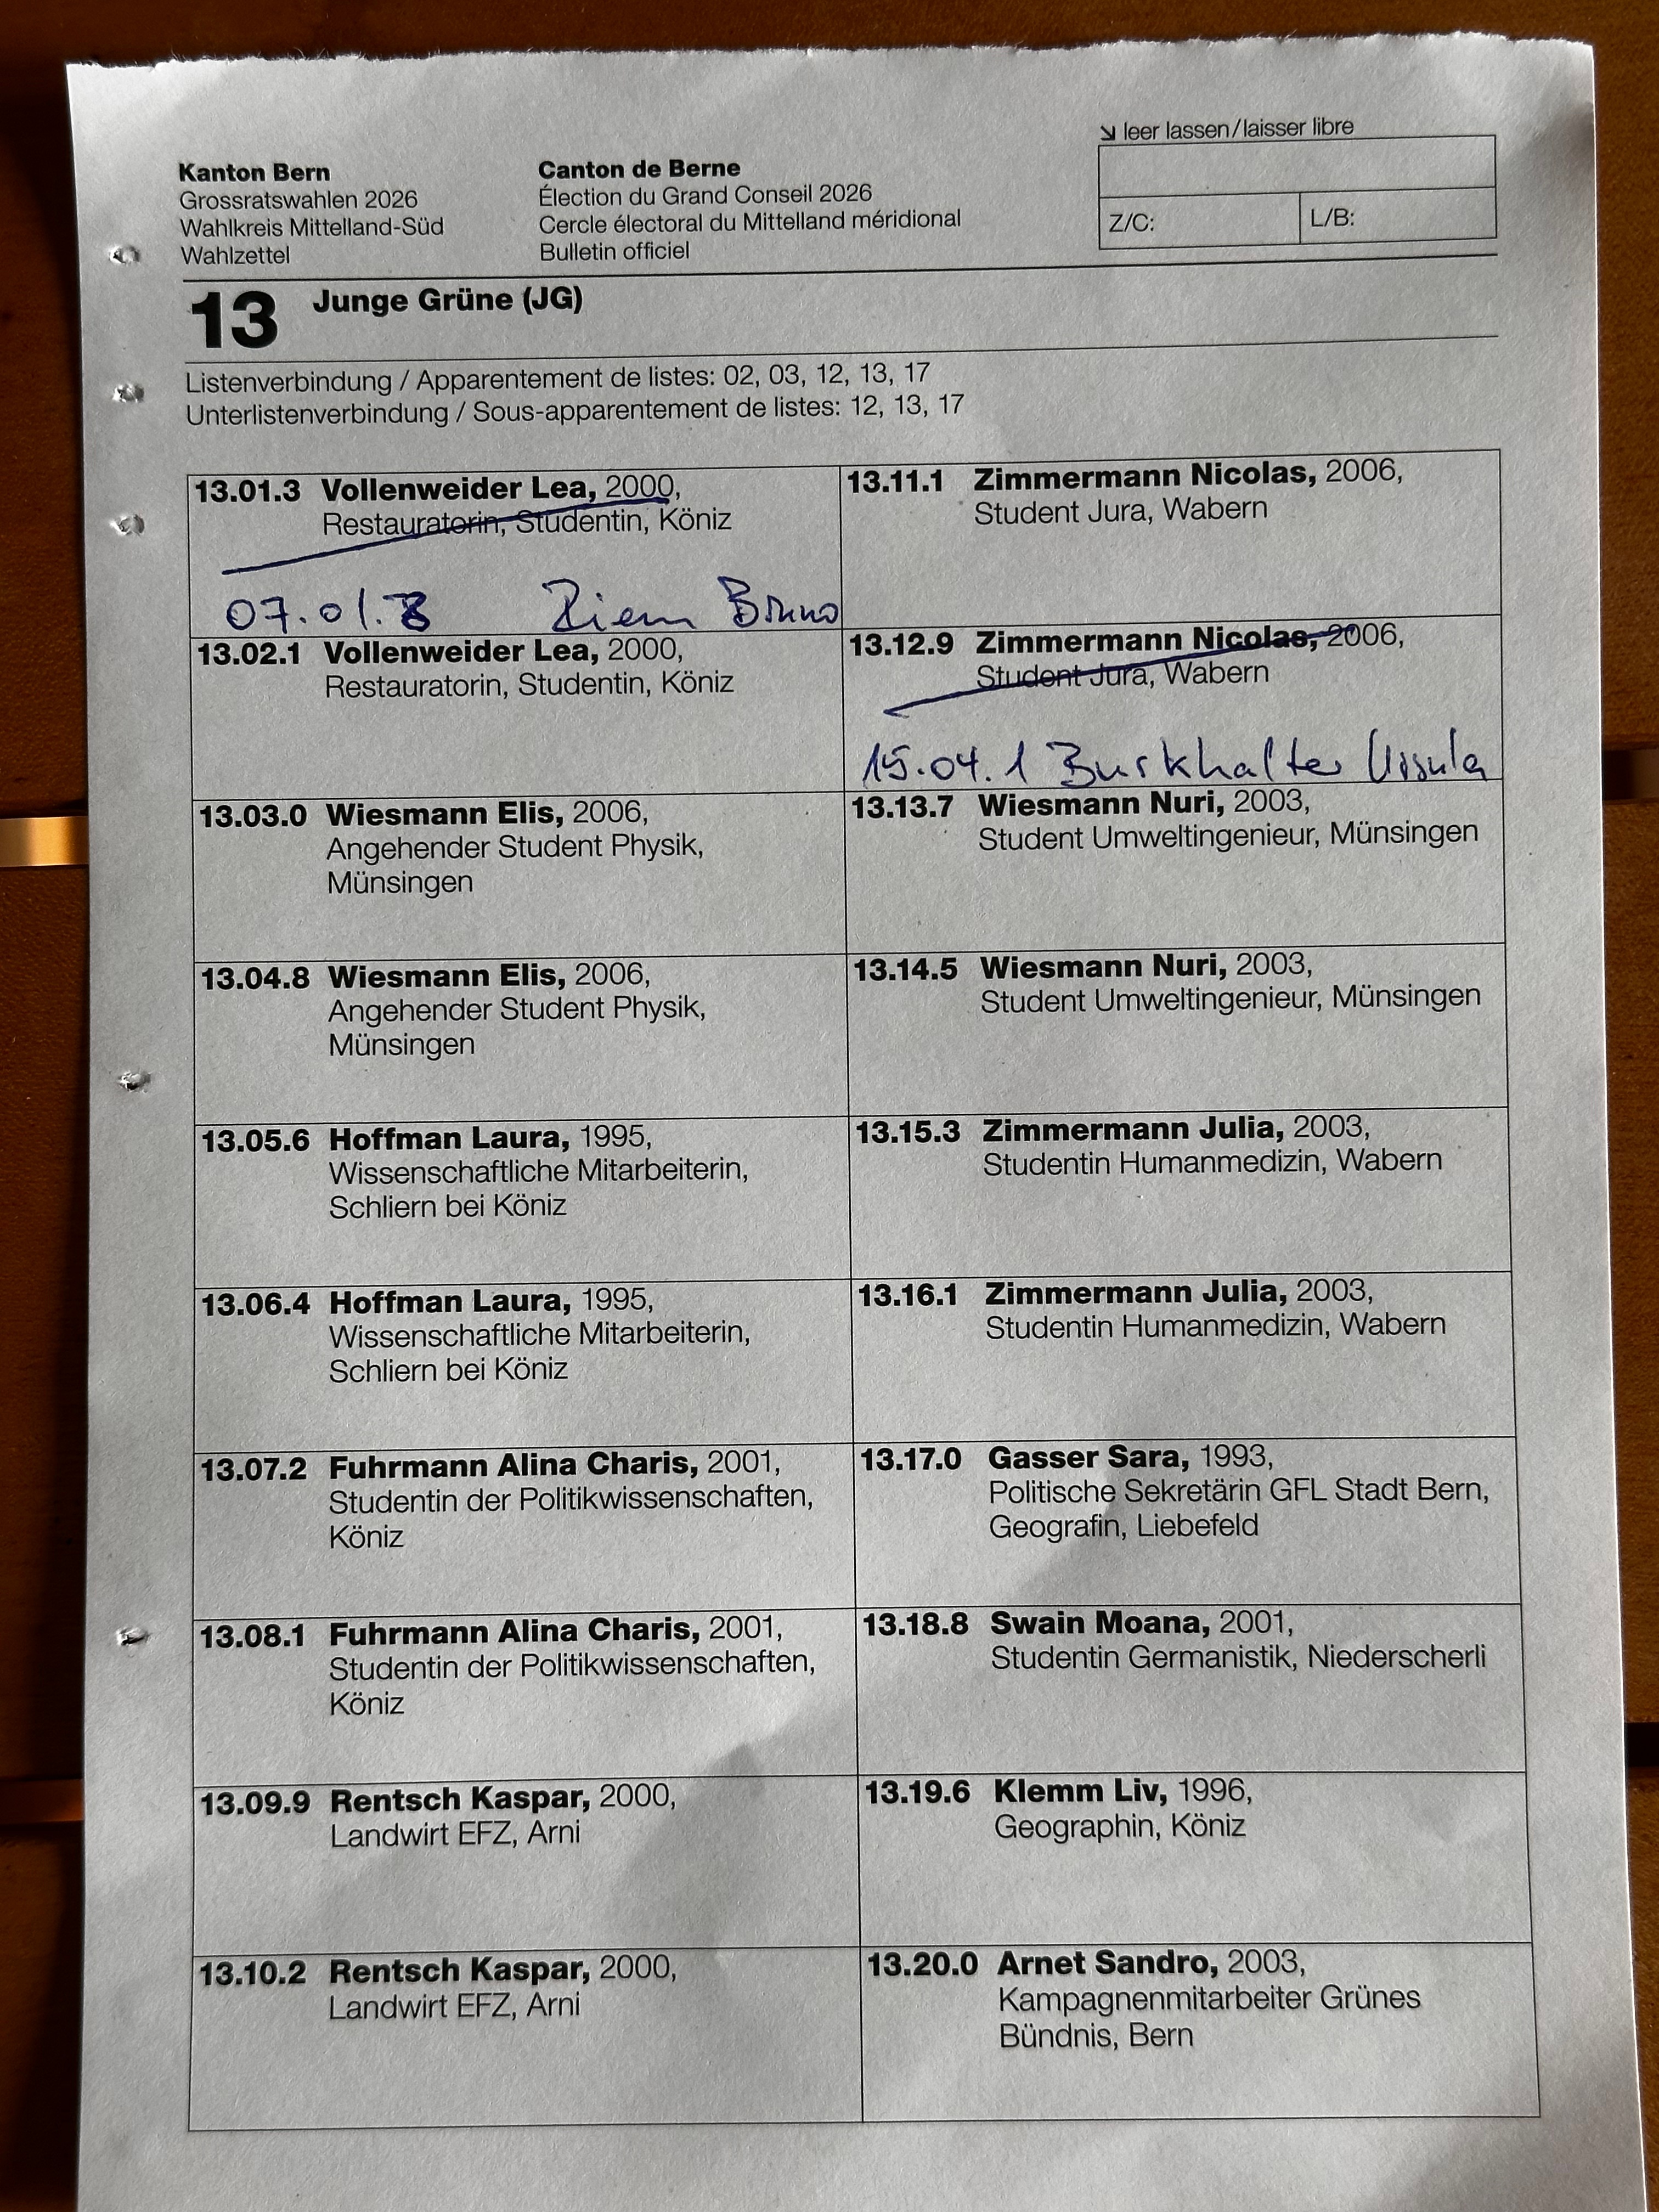 ↘ leer lassen/laisser libre
Kanton Bern
Grossratswahlen 2026
Wahlkreis Mittelland-Süd
Wahlzettel
Canton de Berne
Élection du Grand Conseil 2026
Cercle électoral du Mittelland méridional
Bulletin officiel
Z/C: L/B:
13 Junge Grüne (JG)
Listenverbindung / Apparentement de listes: 02, 03, 12, 13, 17
Unterlistenverbindung / Sous-apparentement de listes: 12, 13, 17
13.01.3 Vollenweider Lea, 2000,
Restauratorin, Studentin, Köniz
07.01.8 Riem Bruno
13.02.1 Vollenweider Lea, 2000,
Restauratorin, Studentin, Köniz
13.03.0 Wiesmann Elis, 2006,
Angehender Student Physik,
Münsingen
13.04.8 Wiesmann Elis, 2006,
Angehender Student Physik,
Münsingen
13.05.6 Hoffman Laura, 1995,
Wissenschaftliche Mitarbeiterin,
Schliern bei Köniz
13.06.4 Hoffman Laura, 1995,
Wissenschaftliche Mitarbeiterin,
Schliern bei Köniz
13.07.2 Fuhrmann Alina Charis, 2001,
Studentin der Politikwissenschaften,
Köniz
13.08.1 Fuhrmann Alina Charis, 2001,
Studentin der Politikwissenschaften,
Köniz
13.09.9 Rentsch Kaspar, 2000,
Landwirt EFZ, Arni
13.10.2 Rentsch Kaspar, 2000,
Landwirt EFZ, Arni
13.11.1 Zimmermann Nicolas, 2006,
Student Jura, Wabern
13.12.9 Zimmermann Nicolas, 2006,
Student Jura, Wabern
15.04.1 Burkhalter Ursula
13.13.7 Wiesmann Nuri, 2003,
Student Umweltingenieur, Münsingen
13.14.5 Wiesmann Nuri, 2003,
Student Umweltingenieur, Münsingen
13.15.3 Zimmermann Julia, 2003,
Studentin Humanmedizin, Wabern
13.16.1 Zimmermann Julia, 2003,
Studentin Humanmedizin, Wabern
13.17.0 Gasser Sara, 1993,
Politische Sekretärin GFL Stadt Bern,
Geografin, Liebefeld
13.18.8 Swain Moana, 2001,
Studentin Germanistik, Niederscherli
13.19.6 Klemm Liv, 1996,
Geographin, Köniz
13.20.0 Arnet Sandro, 2003,
Kampagnenmitarbeiter Grünes
Bündnis, Bern